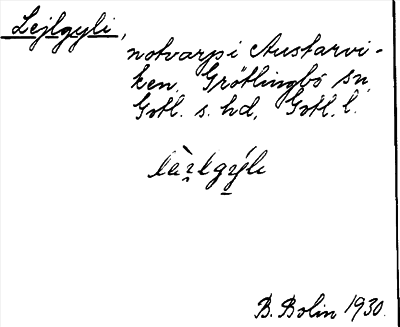 Lejlgyli,
notvarp i Austarvi-
ken, Grötlingbo sn,
Gotl. s. hd, Gotl. l.
B. Bolin 1930.